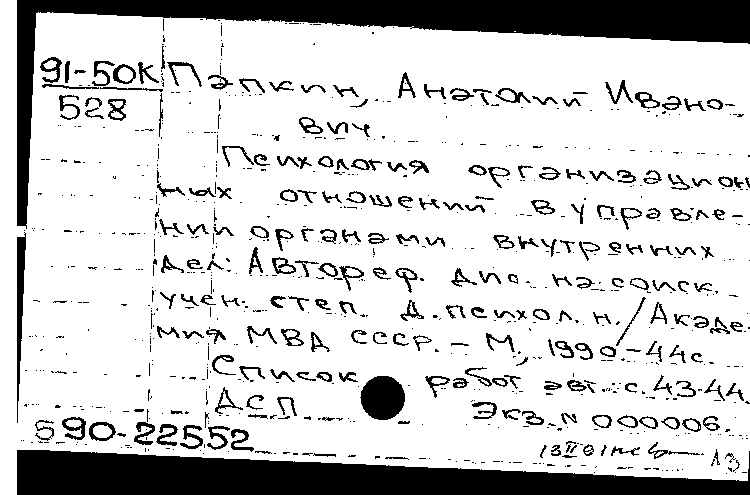 91-50К Папкин, Анатолий Ивано-
528 вич.
Психология организацион
ных отношений в управле-
нии органами внутренних
дел: Автореф. дис. на соиск.
учен. степ. д. психол. н. / Акаде-
мия МВД СССР. - М., 1990. - 44 с.
Список работ авт.: с. 43-44
ДСП Экз. N 000006.
590-22552